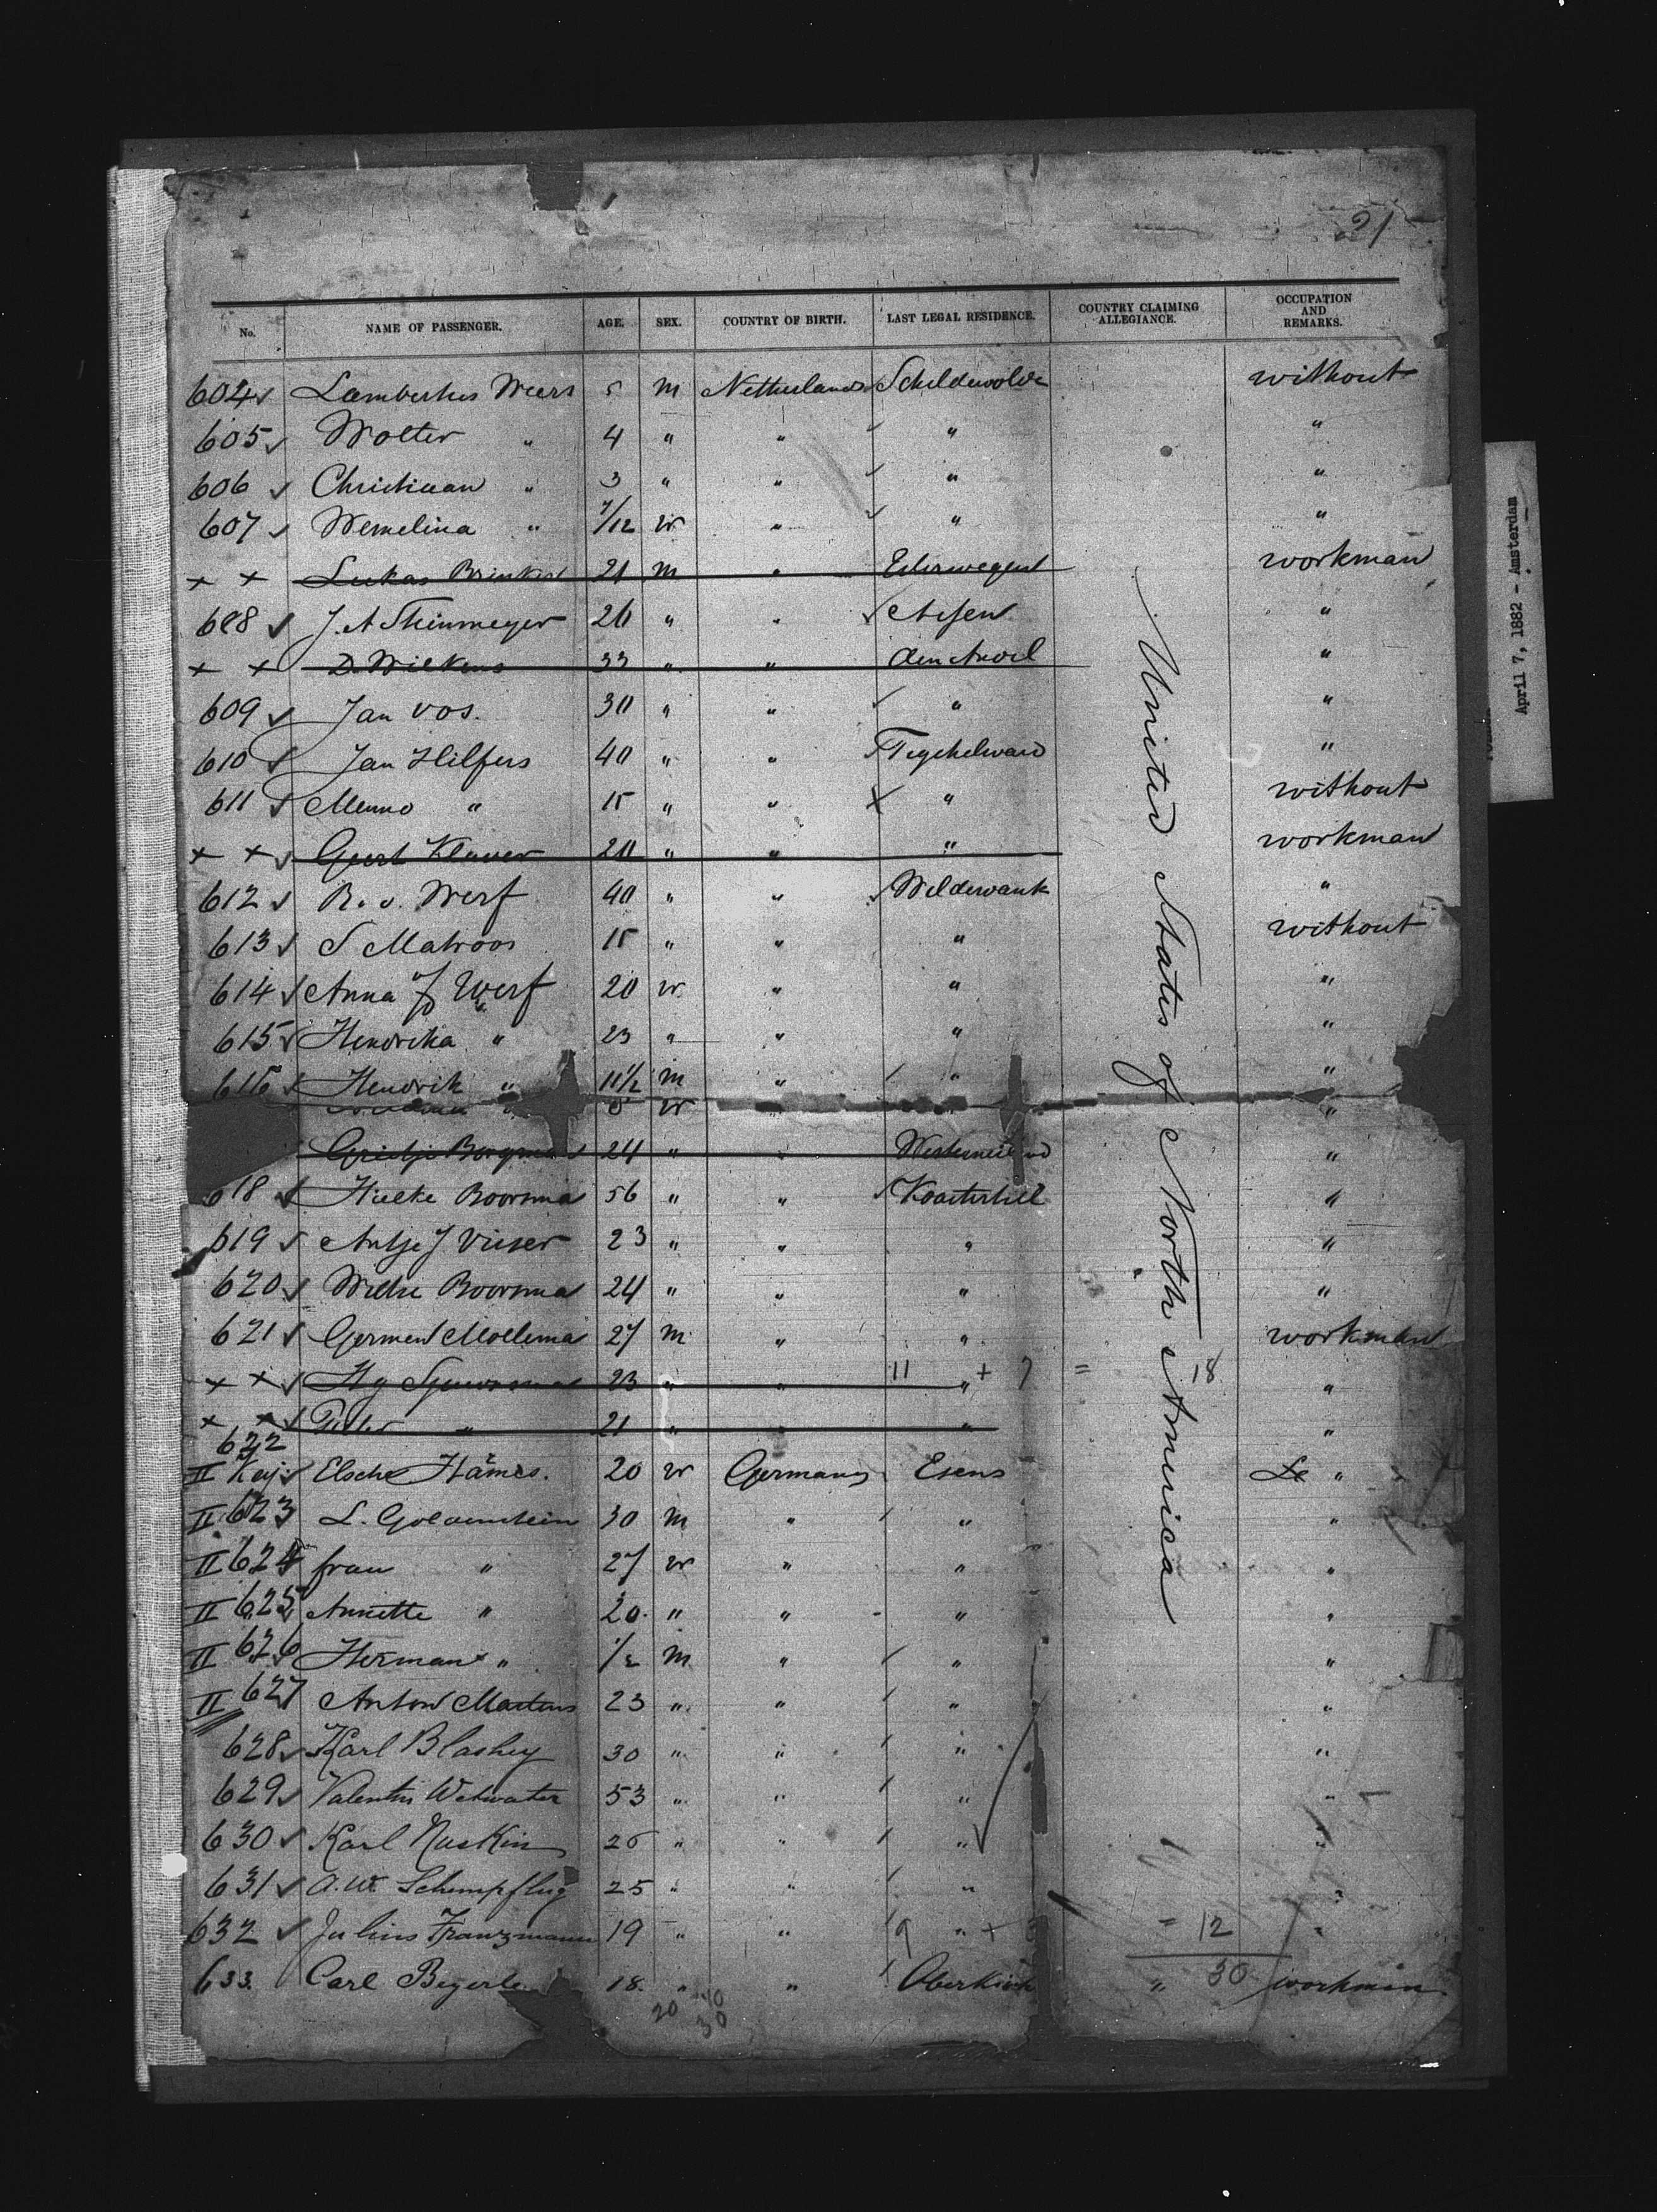 21
No. NAME OF PASSENGER. AGE. SEX. COUNTRY OF BIRTH. LAST LEGAL RESIDENCE. COUNTRY CLAIMING ALLEGIANCE. OCCUPATION AND REMARKS.
604 Lambertus Weers 5 m Netherlands Schildewolde without
605 Wolter " 4 " " " "
606 Christiaan " 3 " " " "
607 Wemelina " 7/12 w " " "
x x Lukas Brinker 21 m " workman
608 J. A Steinmeyer 26 " " Assen "
x x D. Wilkens 33 " " "
609 Jan Vos. 30 " " " "
610 Jan Hilfers 40 " " "
611 Menno " 15 " " x " without
x x Geert Klaver 20 " " " workman
612 R. v. Werf 40 " " Wildewank "
613 S Matroos 15 " " " without
614 Anna v/d Werf 20 w " " "
615 Hendrika " 23 " " " "
616 Hendrik " 11½ m " " "
w "
Grietje Borgman 24 " " "
618 Hielke Boorsma 56 " " "
619 Antje J Visser 23 " " " "
620 Boorsma 24 " " " "
621 Germen Mollema 27 m " " workman
x x 23 " " " "
11 + 7 = 18
x x 21 " " " "
622
II Kaj. Elsche Hämes. 20 w Germany Esens "
II 623 L. Goldenstein 30 m " " "
II 624 frau " 27 w " " "
II 625 Annette " 20 " " " "
II 626 Herman " ½ m " " "
II 627 Anton Martens 23 " " " "
628 Karl Blashey 30 " " " "
629 Valentin 53 " " " "
630 Karl Nuskin 26 " " " "
631 A. W. Schimpflug 25 " " " "
632 Julius Franzmann 19 " " " "
9 + 3 = 12
633. Carl Beyerle 18. " " Oberkirch " workman
30
20 10
30
United States of North America
April 7, 1882 - Amsterdam